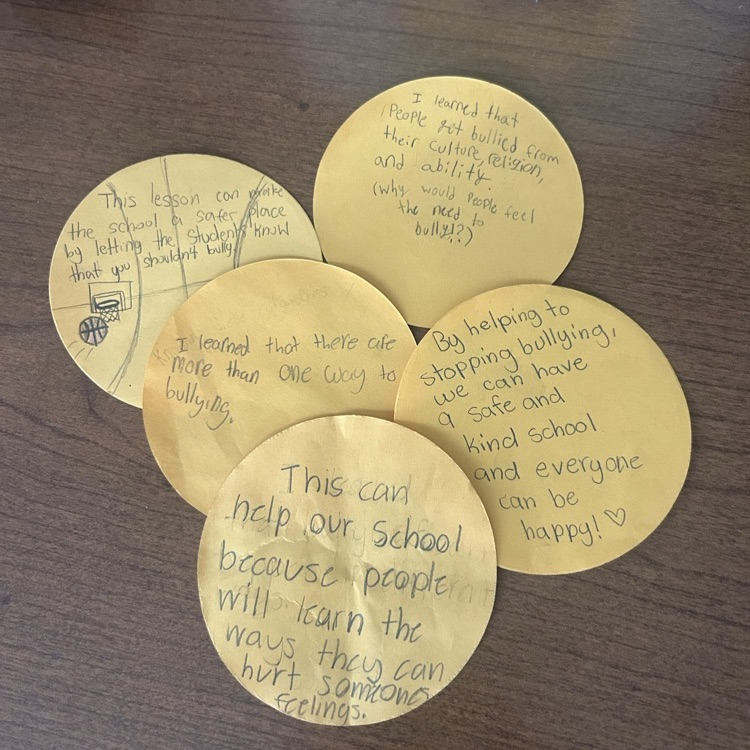 I learned that
People get bullied from
their culture, religion,
and ability.
(why would People feel
the need to
bully!?)
This lesson can make
the school a safer place
by letting the students know
that you shouldn't bully.
I learned that there are
more than one way to
bullying.
By helping to
stopping bullying,
we can have
a safe and
kind school
and everyone
can be
happy! ♡
This can
help our school
because people
will learn the
ways they can
hurt someones
feelings.